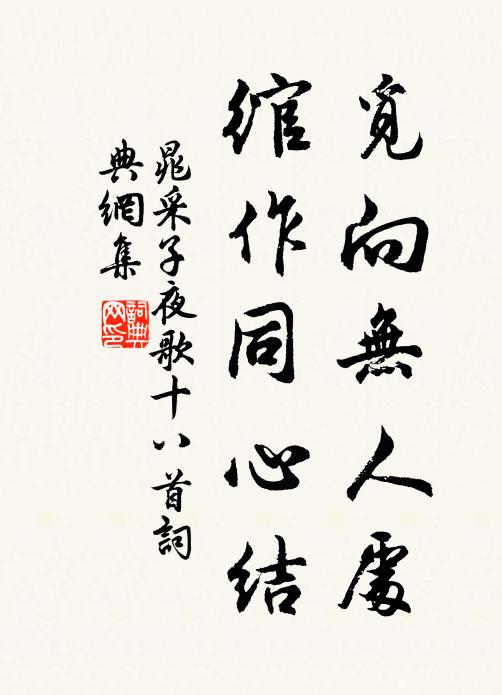 覓向無人處
綰作同心結
晁采子夜歌十八首詞
典網集
詞典網印